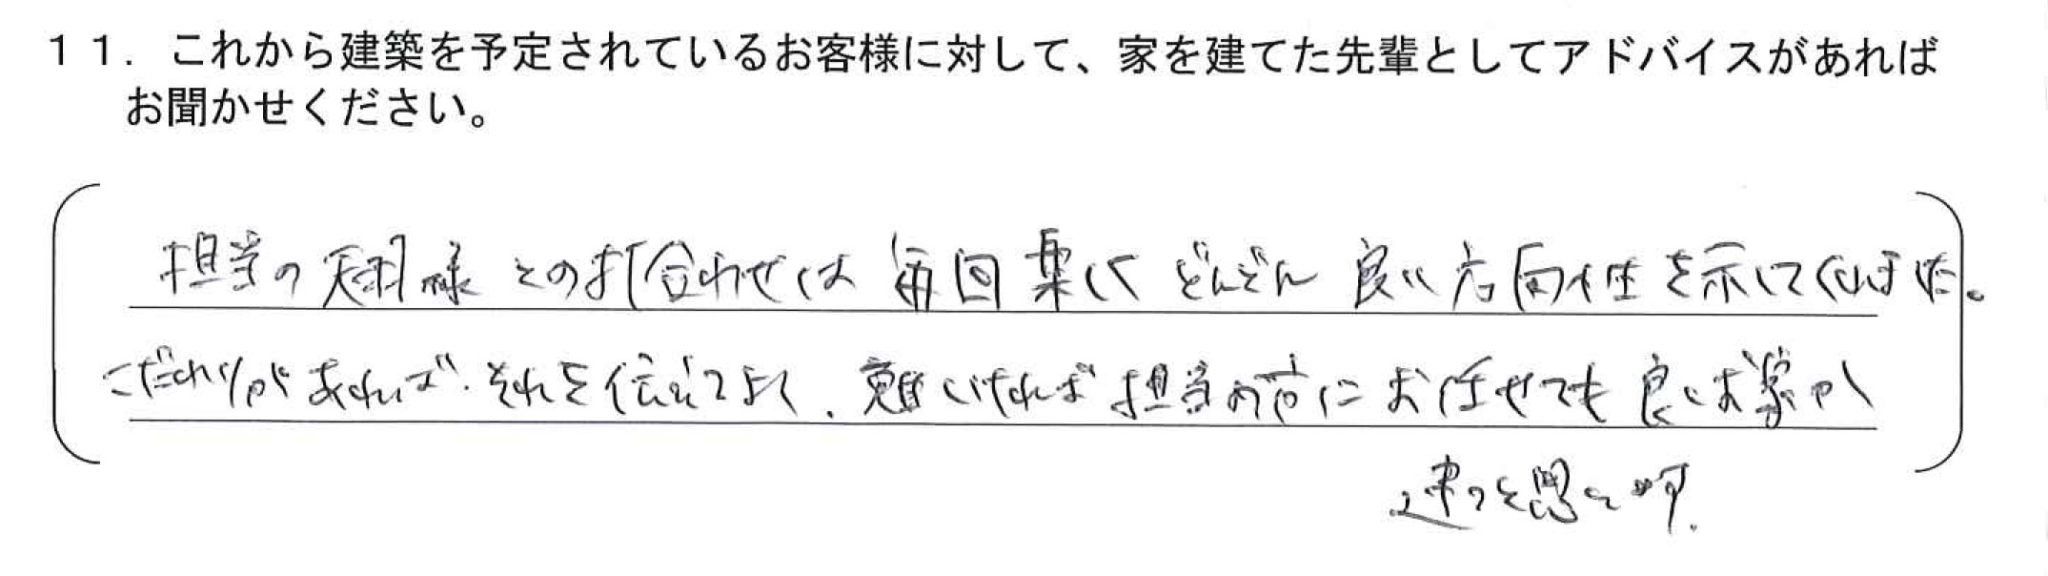 11．これから建築を予定されているお客様に対して、家を建てた先輩としてアドバイスがあれば
お聞かせください。
担当の様との打合わせは毎回楽しくどんどん良い方向性を示してくれました。
こだわりがあれば、それを伝えてよく、難しければ担当の方にお任せでも良いお家が
建つと思います。